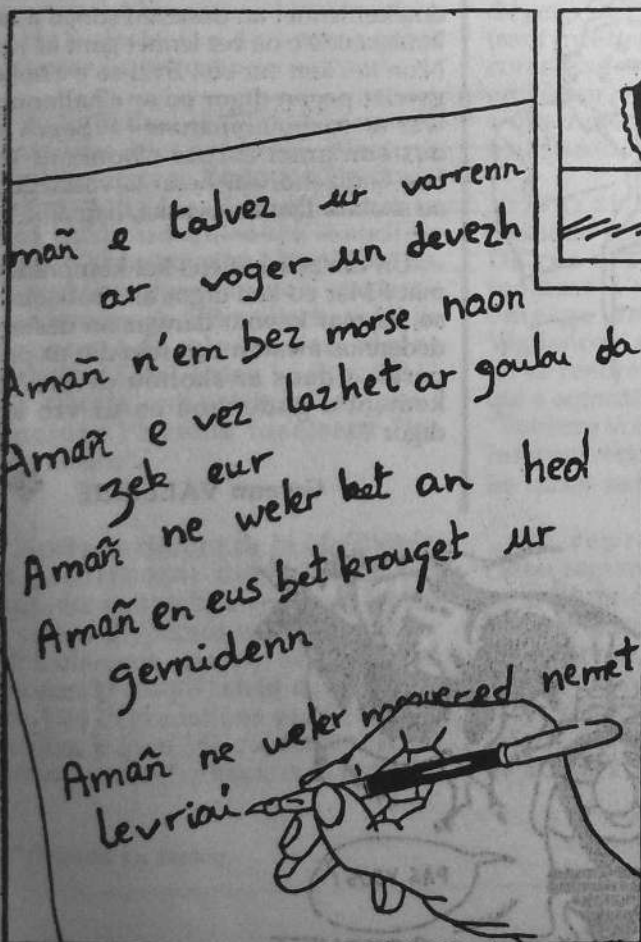 mañ e talvez ur varrenn
ar voger un devezh
Amañ n'em bez morse naon
Amañ e vez lazhet ar goulou da
zek eur
Amañ ne weler ket an heol
Amañ en eus bet krouget ur
gernidenn
Amañ ne weler nemet
levriaù